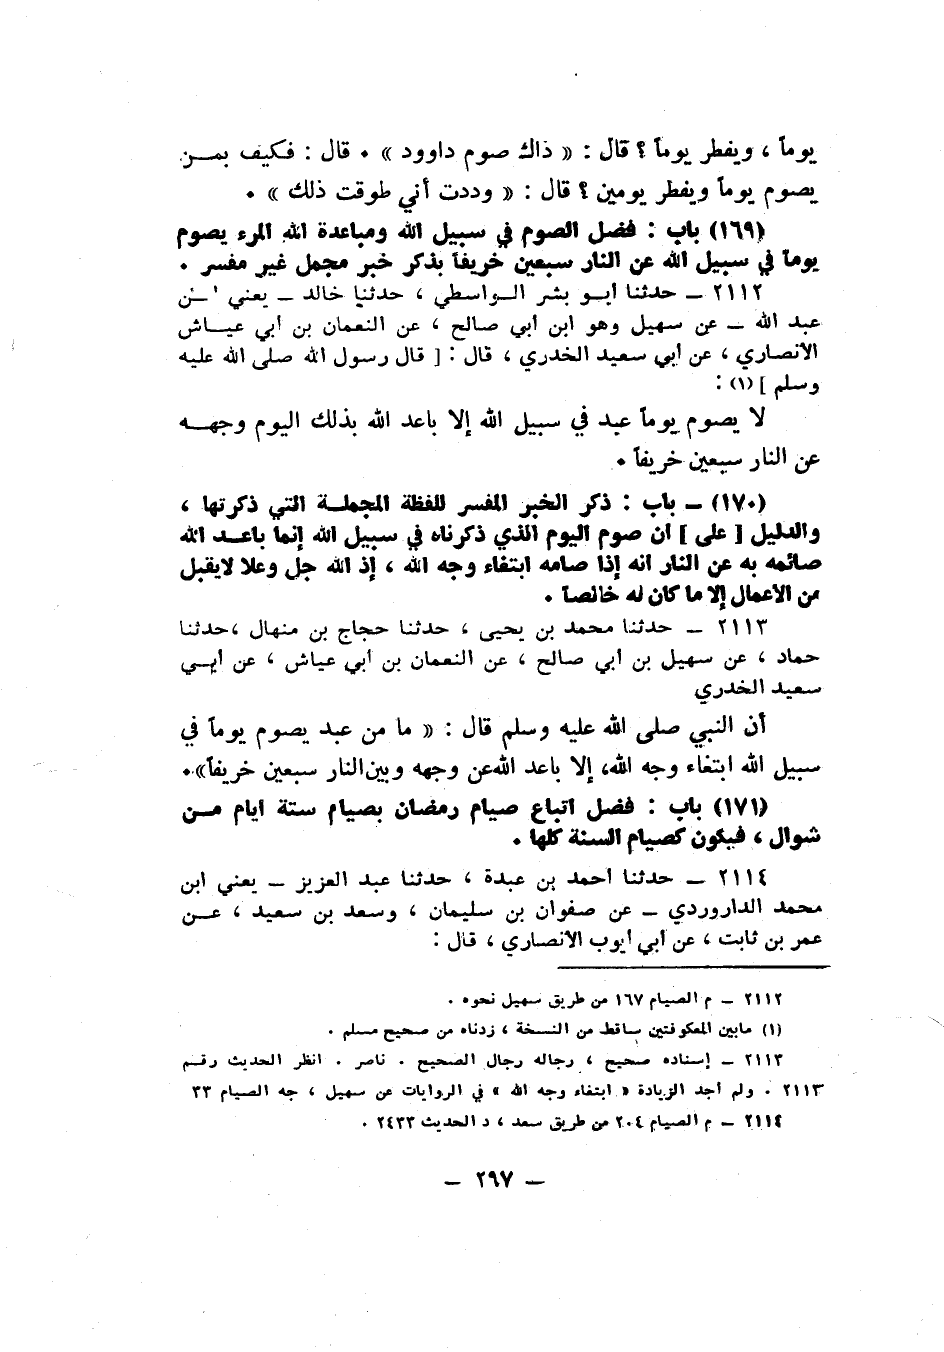 يوماً ، ويفطر يوماً ؟ قال : « ذاك صوم داوود » ٠ قال : فكيف بمــن
يصوم يوماً ويفطر يومين ؟ قال : « وددت أني طوقت ذلك » ٠
(١٦٩) باب : فضل الصوم في سبيل الله ومباعدة الله المرء يصوم
يوماً في سبيل الله عن النار سبعين خريفاً بذكر خبر مجمل غير مفسر ٠
٢١١٢ ــ حدثنا أبــو بشر الــواسطي ، حدثنا خالد ــ يعني
عبد الله ــ عن سهيل وهو ابن أبي صالح ، عن النعمان بن أبي عيــاش
الأنصاري ، عن أبي سعيد الخدري ، قال : [ قال رسول الله صلى الله عليه
وسلم ] (١) :
لا يصوم يوماً عبد في سبيل الله إلا باعد الله بذلك اليوم وجهــه
عن النار سبعين خريفاً ٠
(١٧٠) ــ باب : ذكر الخبر المفسر للفظة المجملــة التي ذكرتها ،
والدليل [ على ] أن صوم اليوم الذي ذكرناه في سبيل الله إنما باعــد الله
صائمه به عن النار أنه إذا صامه ابتغاء وجه الله ، إذ الله جل وعلا لايقبل
من الأعمال إلا ما كان له خالصاً ٠
٢١١٣ ــ حدثنا محمد بن يحيى ، حدثنا حجاج بن منهال ،حدثنا
حماد ، عن سهيل بن أبي صالح ، عن النعمان بن أبي عياش ، عن أبــي
سعيد الخدري
أن النبي صلى الله عليه وسلم قال : « ما من عبد يصوم يوماً في
سبيل الله ابتغاء وجه الله، إلا باعد الله عن وجهه وبين النار سبعين خريفاً»٠
(١٧١) باب : فضل اتباع صيام رمضان بصيام ستة أيام مــن
شوال ، فيكون كصيام السنة كلها ٠
٢١١٤ ــ حدثنا أحمد بن عبدة ، حدثنا عبد العزيز ــ يعني ابن
محمد الداروردي ــ عن صفوان بن سليمان ، وسعد بن سعيد ، عــن
عمر بن ثابت ، عن أبي أيوب الأنصاري ، قال :
٢١١٢ ــ م الصيام ١٦٧ من طريق سهيل نحوه ٠
(١) مابين المعكوفتين ساقط من النسخة ، زدناه من صحيح مسلم ٠
٢١١٣ ــ إسناده صحيح ، رجاله رجال الصحيح ٠ ناصر ٠ انظر الحديث رقــم
٢١١٣ ٠ ولم أجد الزيادة « ابتغاء وجه الله » في الروايات عن سهيل ، جه الصيام ٣٣
٢١١٤ ــ م الصيام ٢٠٤ من طريق سعد ، د الحديث ٢٤٣٣ ٠
ــ ٢٩٧ ــ